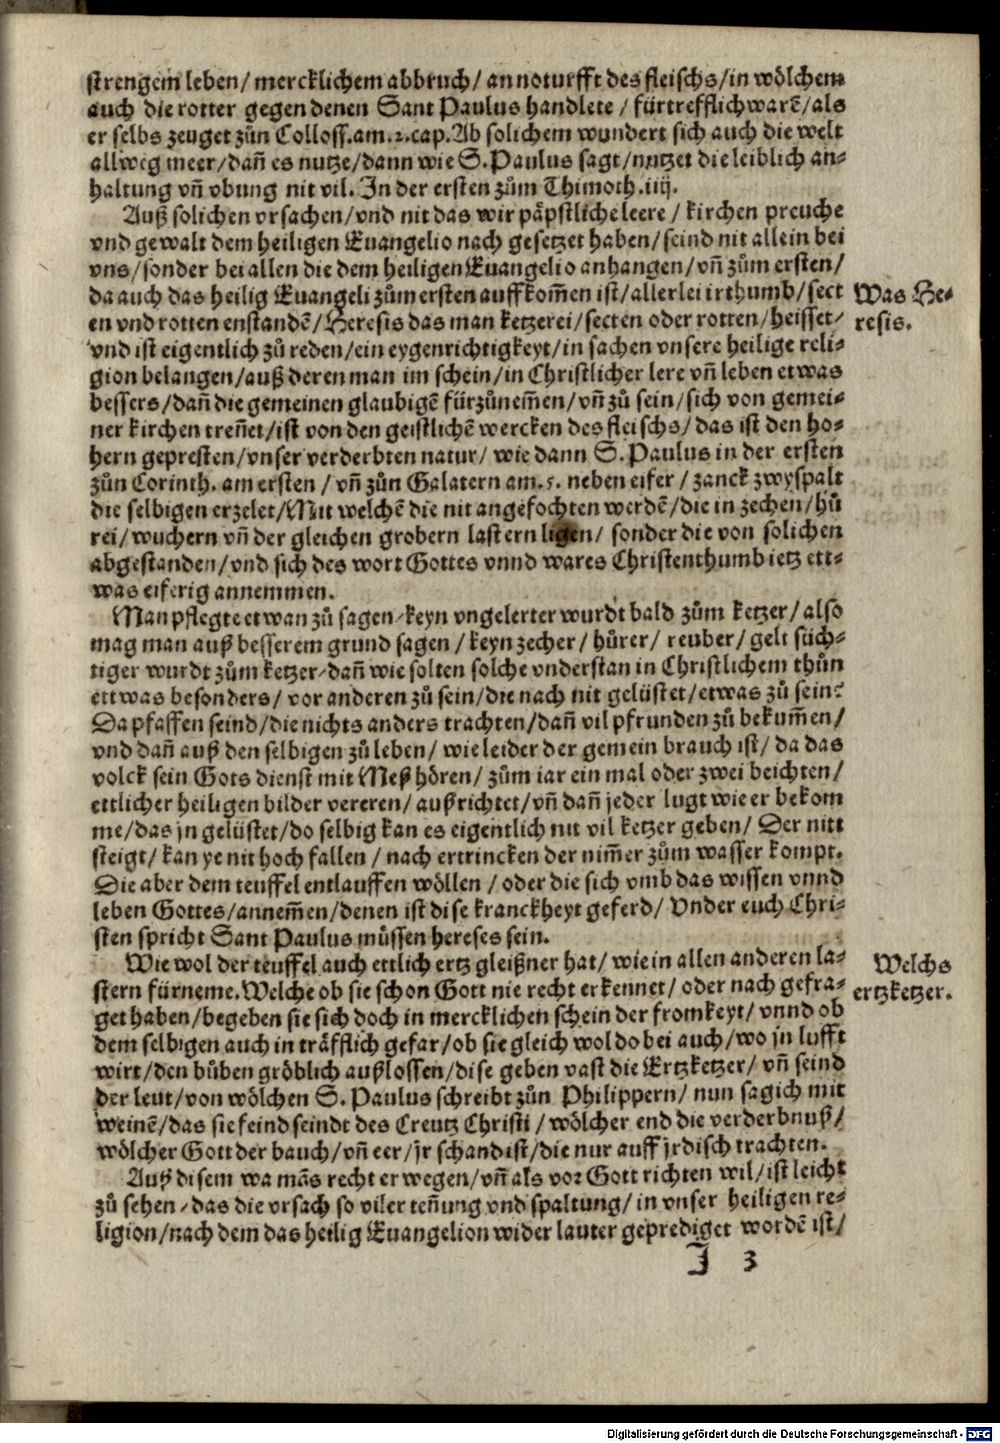 strengem leben/ mercklichem abbruch/ an noturfft des fleischs/in wölchem
auch die rotter gegen denen Sant Paulus handlete / fürtrefflich warẽ/als
er selbs zeuget zůn Colloss.am.2.cap.Ab solichem wundert sich auch die welt
allweg meer/dañ es nutze/dann wie S.Paulus sagt/nutzet die leiblich an-
haltung vñ vbung nit vil. In der ersten zům Thimoth.iiij.
Auß solichen vrsachen/vnd nit das wir päpstliche leere / kirchen preuche
vnd gewalt dem heiligen Euangelio nach gesetzet haben/seind nit allein bei
vns/sonder bei allen die dem heiligen Euangelio anhangen/vñ zům ersten/
da auch das heilig Euangeli zům ersten auffkom̃en ist/allerlei irthumb/sect
en vnd rotten enstandẽ/Heresis das man ketzerei/secten oder rotten/heisset/
vnd ist eigentlich zů reden/ein eygenrichtigkeyt/in sachen vnsere heilige reli-
gion belangen/auß deren man im schein/in Christlicher lere vñ leben etwas
bessers/dañ die gemeinen glaubigẽ fürzůnem̃en/vñ zů sein/sich von gemei-
ner kirchen treñet/ist von den geistlichẽ wercken des fleischs/das ist den ho-
hern gepresten/vnser verderbten natur/ wie dann S.Paulus in der ersten
zůn Corinth. am ersten / vñ zůn Galatern am.5. neben eifer / zanck zwyspalt
die selbigen erzelet/Mit welchẽ die nit angefochten werdẽ/die in zechen/hů
rei/wuchern vñ der gleichen grobern lastern ligen/ sonder die von solichen
abgestanden/vnd sich des wort Gottes vnnd wares Christenthumb ietz ett-
was eiferig annemmen.
Man pflegte etwan zů sagen/keyn vngelerter wurdt bald zům ketzer/also
mag man auß besserem grund sagen / keyn zecher/ hůrer/ reuber/ gelt süch-
tiger wurdt zům ketzer/dañ wie solten solche vnderstan in Christlichem thůn
ettwas besonders/ vor anderen zů sein/die nach nit gelüstet/etwas zů sein?
Da pfaffen seind/die nichts anders trachten/dañ vil pfrunden zů bekum̃en/
vnd dañ auß den selbigen zů leben/ wie leider der gemein brauch ist/ da das
volck sein Gots dienst mit Meß hören/ zům iar ein mal oder zwei beichten/
ettlicher heiligen bilder vereren/ außrichtet/vñ dañ jeder lugt wie er bekom
me/das jn gelüstet/do selbig kan es eigentlich nit vil ketzer geben/ Der nitt
steigt/ kan ye nit hoch fallen / nach ertrincken der nim̃er zům wasser kompt.
Die aber dem teuffel entlauffen wöllen / oder die sich vmb das wissen vnnd
leben Gottes/annem̃en/denen ist dise kranckheyt geferd/ Vnder euch Chri-
sten spricht Sant Paulus můssen hereses sein.
Wie wol der teuffel auch ettlich ertz gleißner hat/ wie in allen anderen la-
stern fürneme.Welche ob sie schon Gott nie recht erkennet/ oder nach gefra-
get haben/begeben sie sich doch in mercklichen schein der fromkeyt/ vnnd ob
dem selbigen auch in träfflich gefar/ob sie gleich wol do bei auch/wo jn lufft
wirt/den bůben gröblich außlossen/dise geben vast die Ertzketzer/ vñ seind
der leut/von wölchen S. Paulus schreibt zůn Philippern/ nun sag ich mit
weinẽ/das sie feind seindt des Creutz Christi / wölcher end die verderbnuß/
wölcher Gott der bauch/vñ eer/jr schand ist/die nur auff jrdisch trachten.
Auß disem wa mãs recht erwegen/vñ als vor Gott richten wil/ist leicht
zů sehen/das die vrsach so viler teñung vnd spaltung/in vnser heiligen re-
ligion/nach dem das heilig Euangelion wider lauter geprediget wordẽ ist/
J 3
Was He-
resis.
Welchs
ertzketzer.
Digitalisierung gefördert durch die Deutsche Forschungsgemeinschaft - DFG